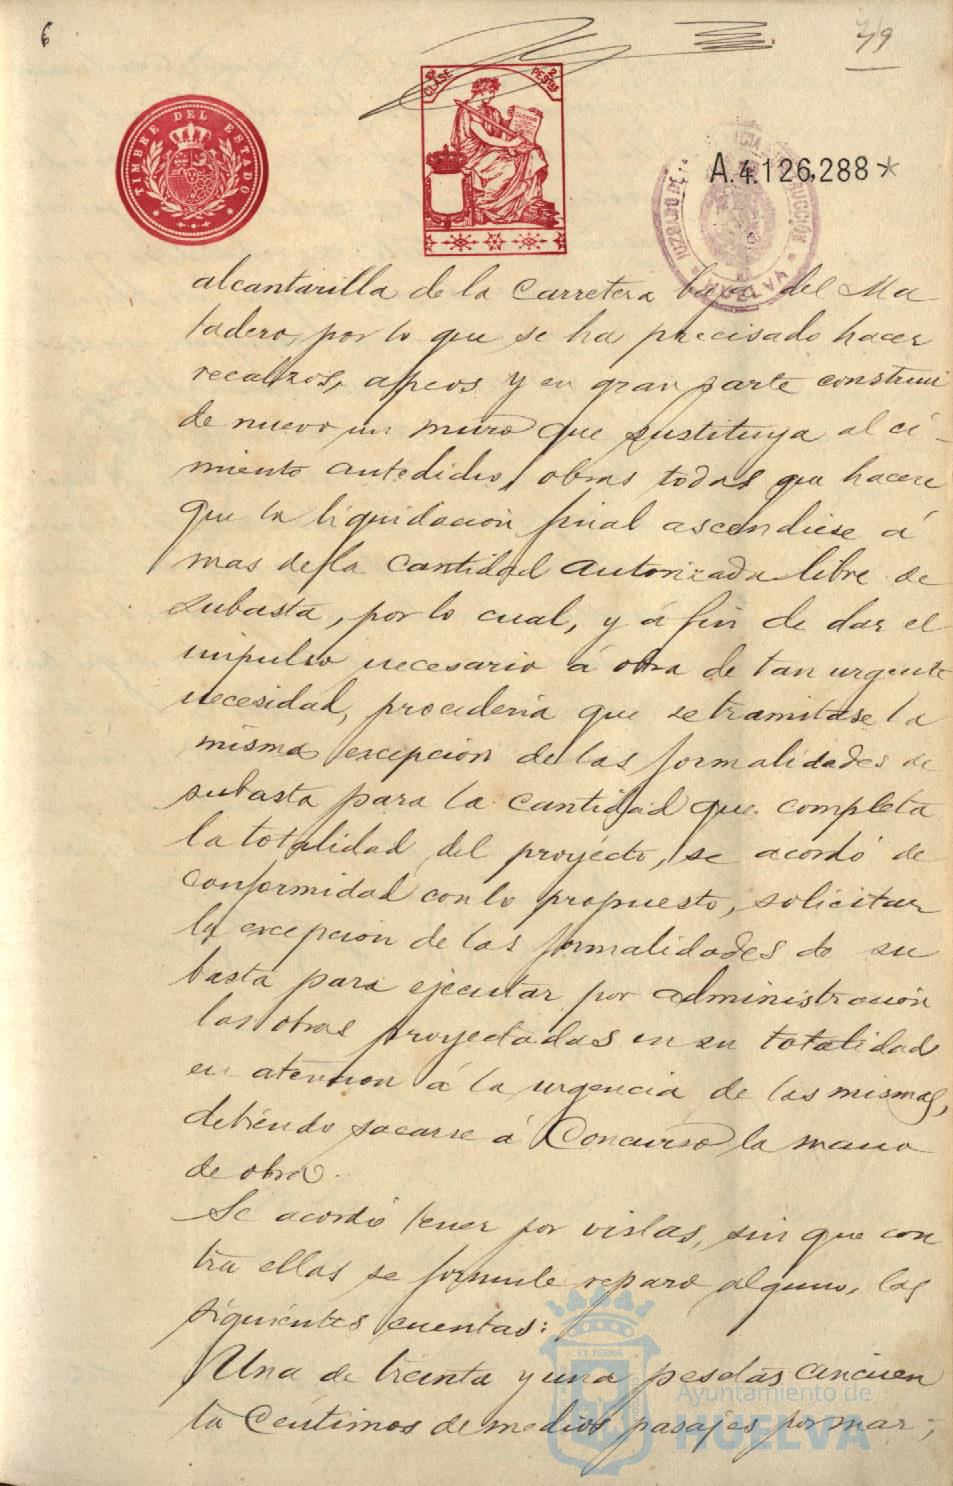 6
79
TIMBRE DEL ESTADO
CLASE
2 PESETAS
A.4.126,288*
JUZGADO DE INSTRUCCIÓN
HUELVA
alcantarilla de la Carretera baja del Ma
tadero, por lo que se ha precisado hacer
recalzos, apeos y en gran parte construir
de nuevo un muro que sustituya al ci-
miento antedicho, obras todas que hacen
que la liquidación final ascendiese á
mas de la cantidad autorizada libre de
subasta, por lo cual, y á fin de dar el
impulso necesario á obra de tan urgente
necesidad, procedería que se tramitase la
misma excepción de las formalidades de
subasta para la cantidad que completa
la totalidad del proyecto, se acordó de
conformidad con lo propuesto, solicitar
la excepcion de las formalidades de su
basta para ejecutar por administración
las obras proyectadas en su totalidad
en atencion á la urgencia de las mismas,
debiendo sacarse á Concurso la mano
de obra.
Se acordó tener por vistas, sin que con
tra ellas se formule reparo alguno, las
siguientes cuentas:
Una de treinta y una pesetas cincuen
ta Céntimos de medios pasajes por mar;
Ayuntamiento de
HUELVA